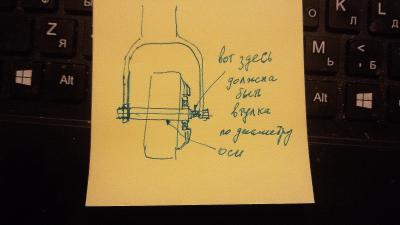 вот здесь
должна
быть
втулка
по диаметру
оси
Alt
Alt
Z
Я